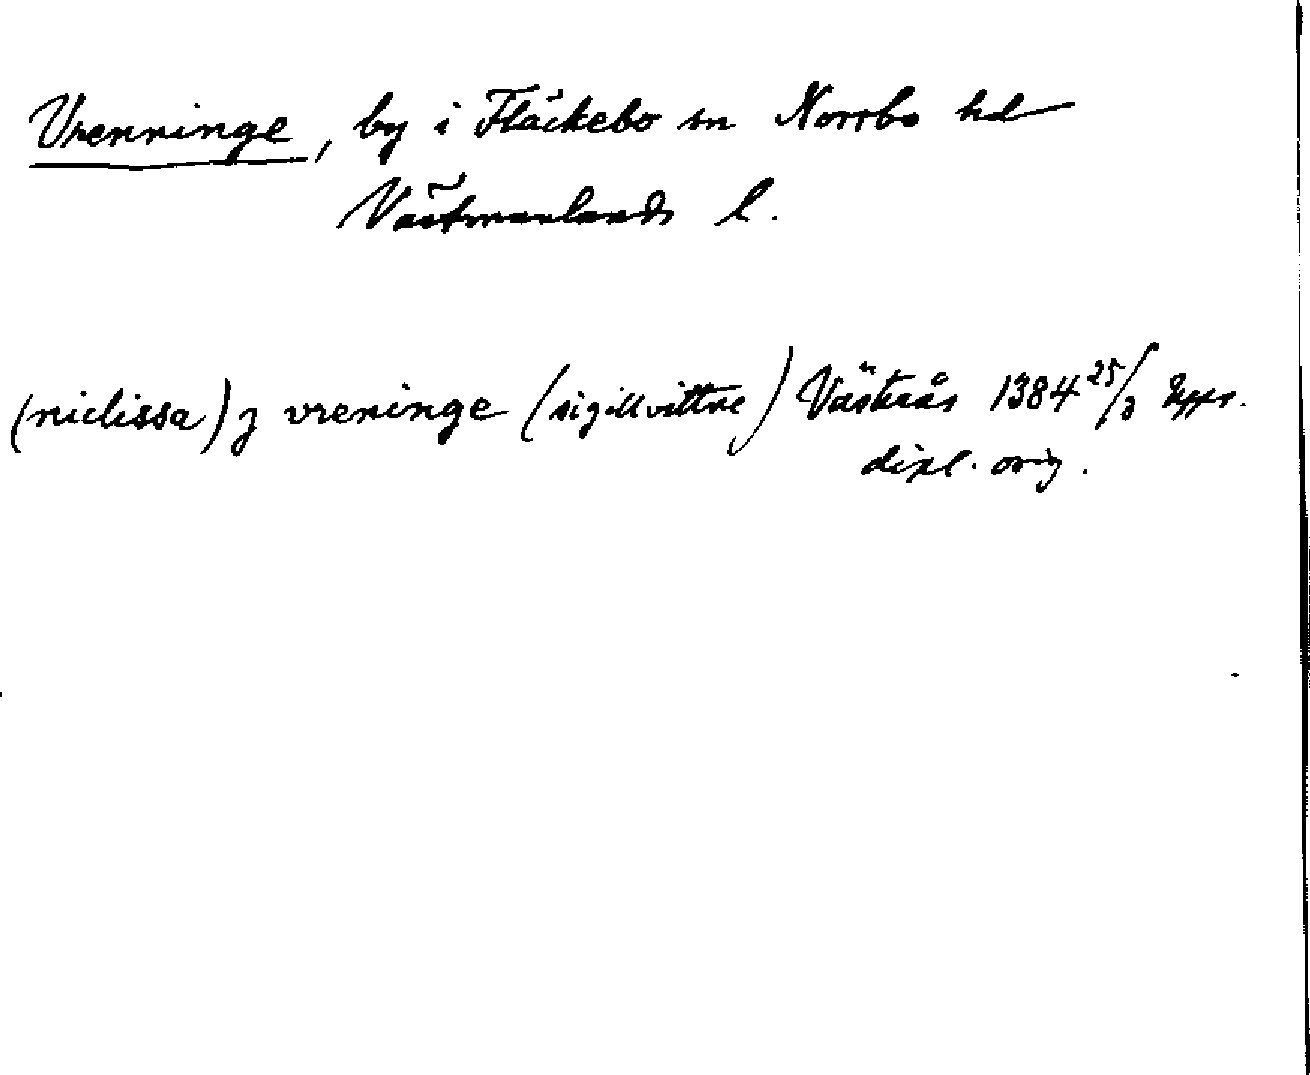 Vrenninge, by i Fläckebo sn Norrbo hd
Västmanlands l.
(niclissa) j vreninge (sigillvittne) Västerås 1384 25/3 Uppr.
dipl. orig.